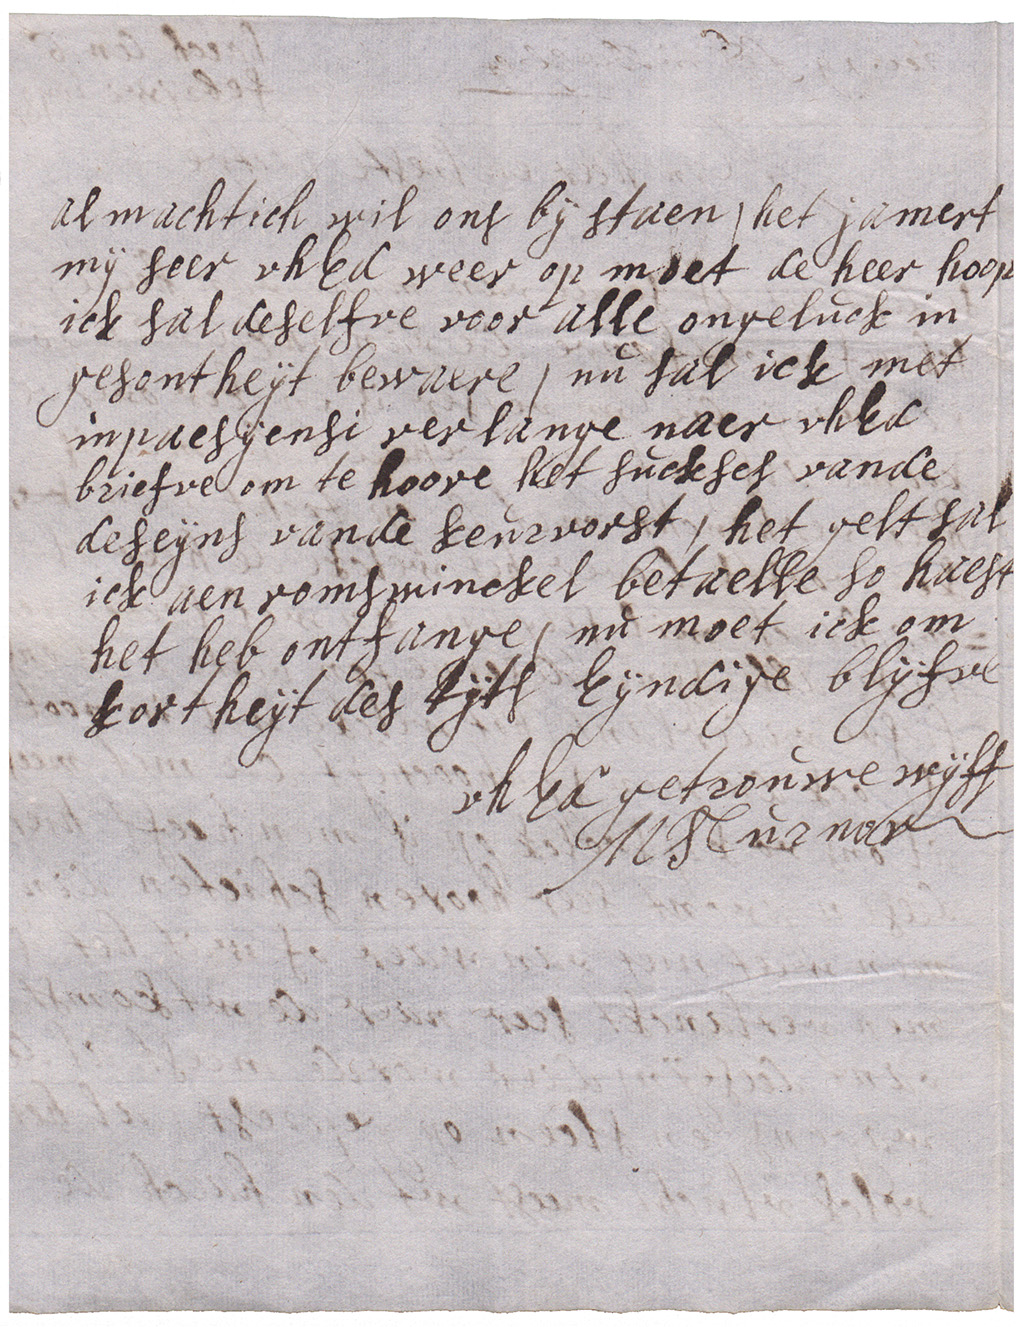 almachtich wil ons bÿ staen / het jamert
mÿ seer uhEd weer op moet de heer hoop
ick sal deselfve voor alle ongeluck in
gesontheÿt bewaere / nu sal ick met
inpaesÿensi verlange naer uhEd
briefve om te hoore het suckses vande
deseÿns vande keurvorst / het gelt sal
ick aen romswinckel betaelle so haest
het heb ontfange / nu moet ick om
kortheÿt des tÿts Eÿndige blÿfve
uhEd getrouwe wÿff
M